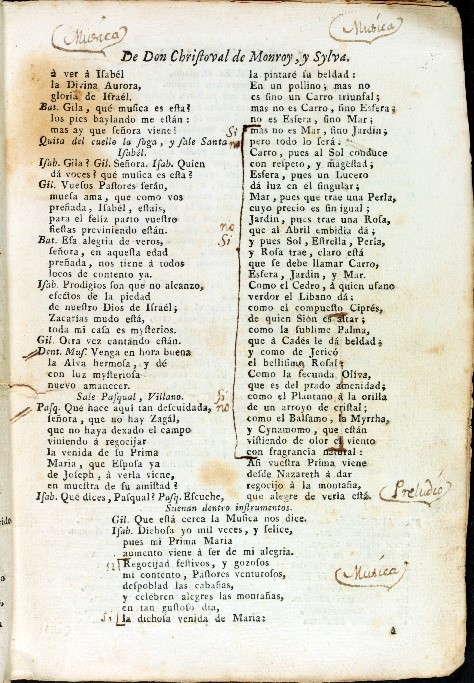 Musica
Musica
De Don Christoval de Monroy, y Sylva.
à ver à Isabél
la Divina Aurora,
gloria de Israél.
Bat. Gila, qué musica es esta?
los pies baylando me están:
mas ay que señora viene!
Quita del cuello la soga, y sale Santa
Isabél.
Isab. Gila? Gil. Señora. Isab. Quien
dá voces? qué musica es esta?
Gil. Vuesos Pastores serán,
muesa ama, que como vos
preñada, Isabél, estais,
para el feliz parto vuestro
fiestas previniendo están.
Bat. Esa alegria de veros,
señora, en aquesta edad
preñada, nos tiene à todos
locos de contento ya.
Isab. Prodigios son que no alcanzo,
efectos de la piedad
de nuestro Dios de Israél;
Zacarías mudo está,
toda mi casa es mysterios.
Gil. Otra vez cantando están.
Dent. Mus. Venga en hora buena
la Alva hermosa, y dé
con luz mysteriosa
nuevo amanecer.
Sale Pasqual, Villano.
Pasq. Qué hace aqui tan descuidada,
señora, que no hay Zagál,
que no haya dexado el campo
viniendo à regocijar
la venida de su Prima
Maria, que Esposa ya
de Joseph, à verla viene,
en muestra de su amistad?
Isab. Qué dices, Pasqual? Pasq. Escuche,
la pintaré su beldad:
En un pollino; mas no
es sino un Carro triunfal;
mas no es Carro, sino Esfera;
no es Esfera, sino Mar;
Si
mas no es Mar, sino Jardin;
no
pero todo lo será:
Carro, pues al Sol conduce
con respeto, y magestad;
Esfera, pues un Lucero
dá luz en el singular;
Mar, pues que trae una Perla,
cuyo precio es sin igual;
Jardin, pues trae una Rosa,
no
que al Abril embidia dá;
Si
y pues Sol, Estrella, Perla,
y Rosa trae, claro está
que se debe llamar Carro,
Esfera, Jardin, y Mar.
Como el Cedro, à quien ufano
verdor el Libano dá;
como el compuesto Ciprés,
de quien Siòn es altar;
como la sublime Palma,
que à Cadés le dá beldad;
y como de Jericó
el bellisimo Rosal;
Como la fecunda Oliva,
Si
que es del prado amenidad;
no
como el Plantano à la orilla
de un arroyo de cristal;
como el Balsamo, la Myrrha,
y Cynamomo, que están
vistiendo de olor el viento
con fragrancia natural:
Asi vuestra Prima viene
desde Nazareth à dar
regocijo à la montaña,
que alegre de verla está.
Preludio
Suenan dentro instrumentos.
Gil. Que está cerca la Musica nos dice.
Isab. Dichosa yo mil veces, y felice,
pues mi Prima Maria
aumento viene à ser de mi alegria.
Regocijad festivos, y gozosos
mi contento, Pastores venturosos,
Musica
despoblad las cabañas,
y celebren alegres las montañas,
en tan gustoso dia,
Si
la dichosa venida de Maria:
à